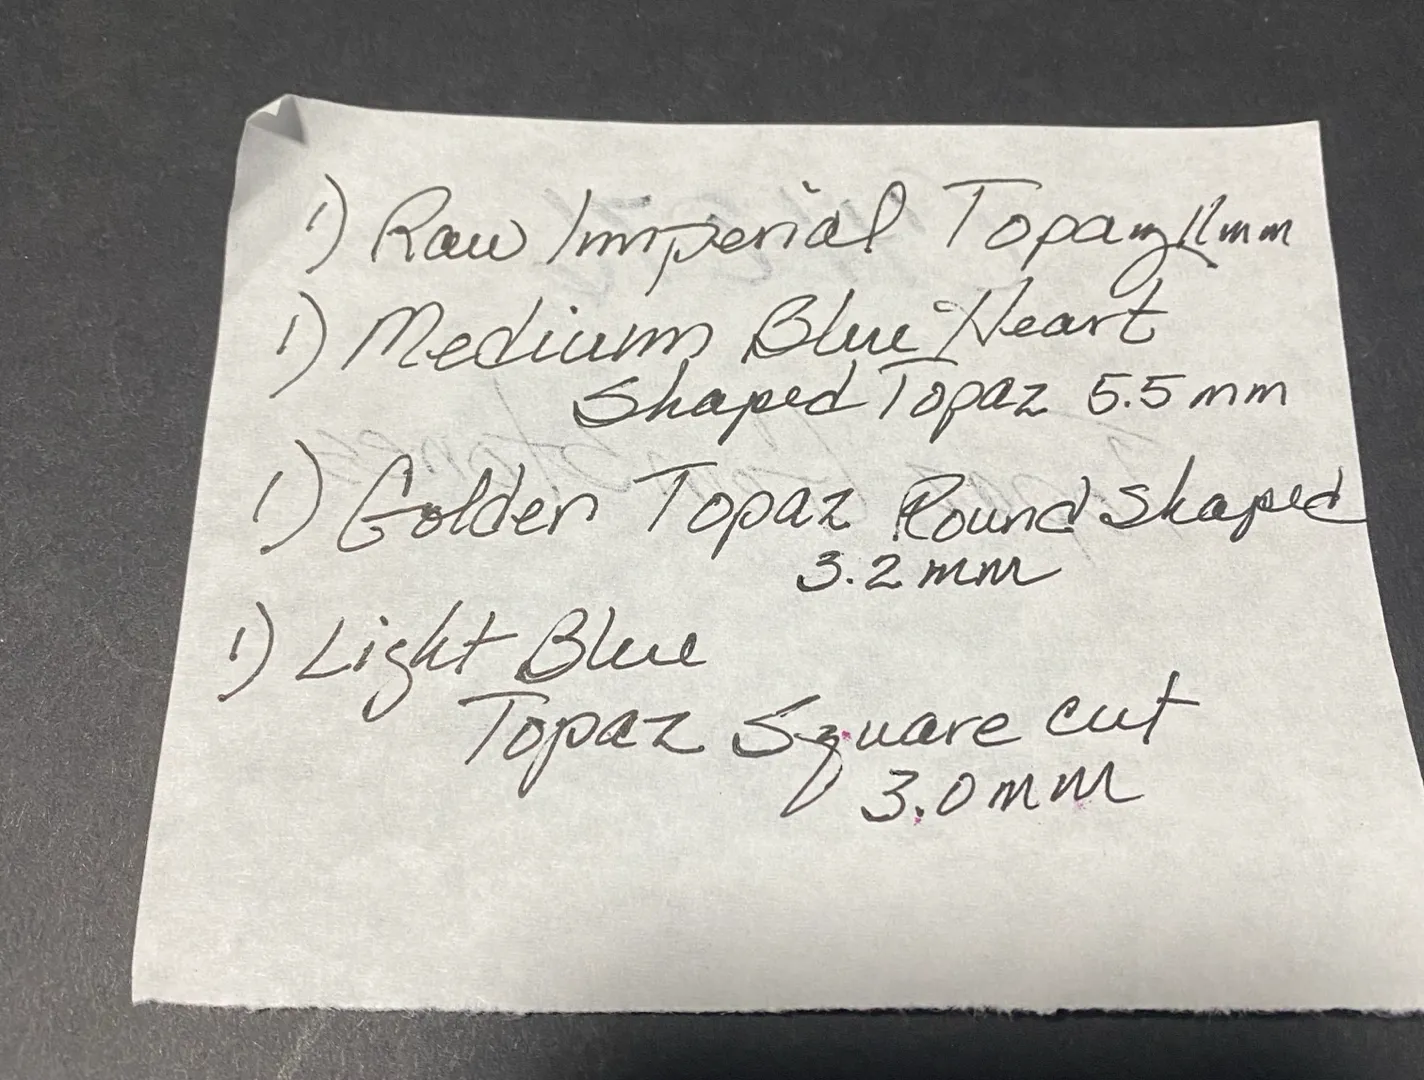 1) Raw Imperial Topaz 12mm
1) Medium Blue Heart
Shaped Topaz 5.5mm
1) Golden Topaz Round Shaped
3.2mm
1) Light Blue
Topaz Square cut
3.0mm